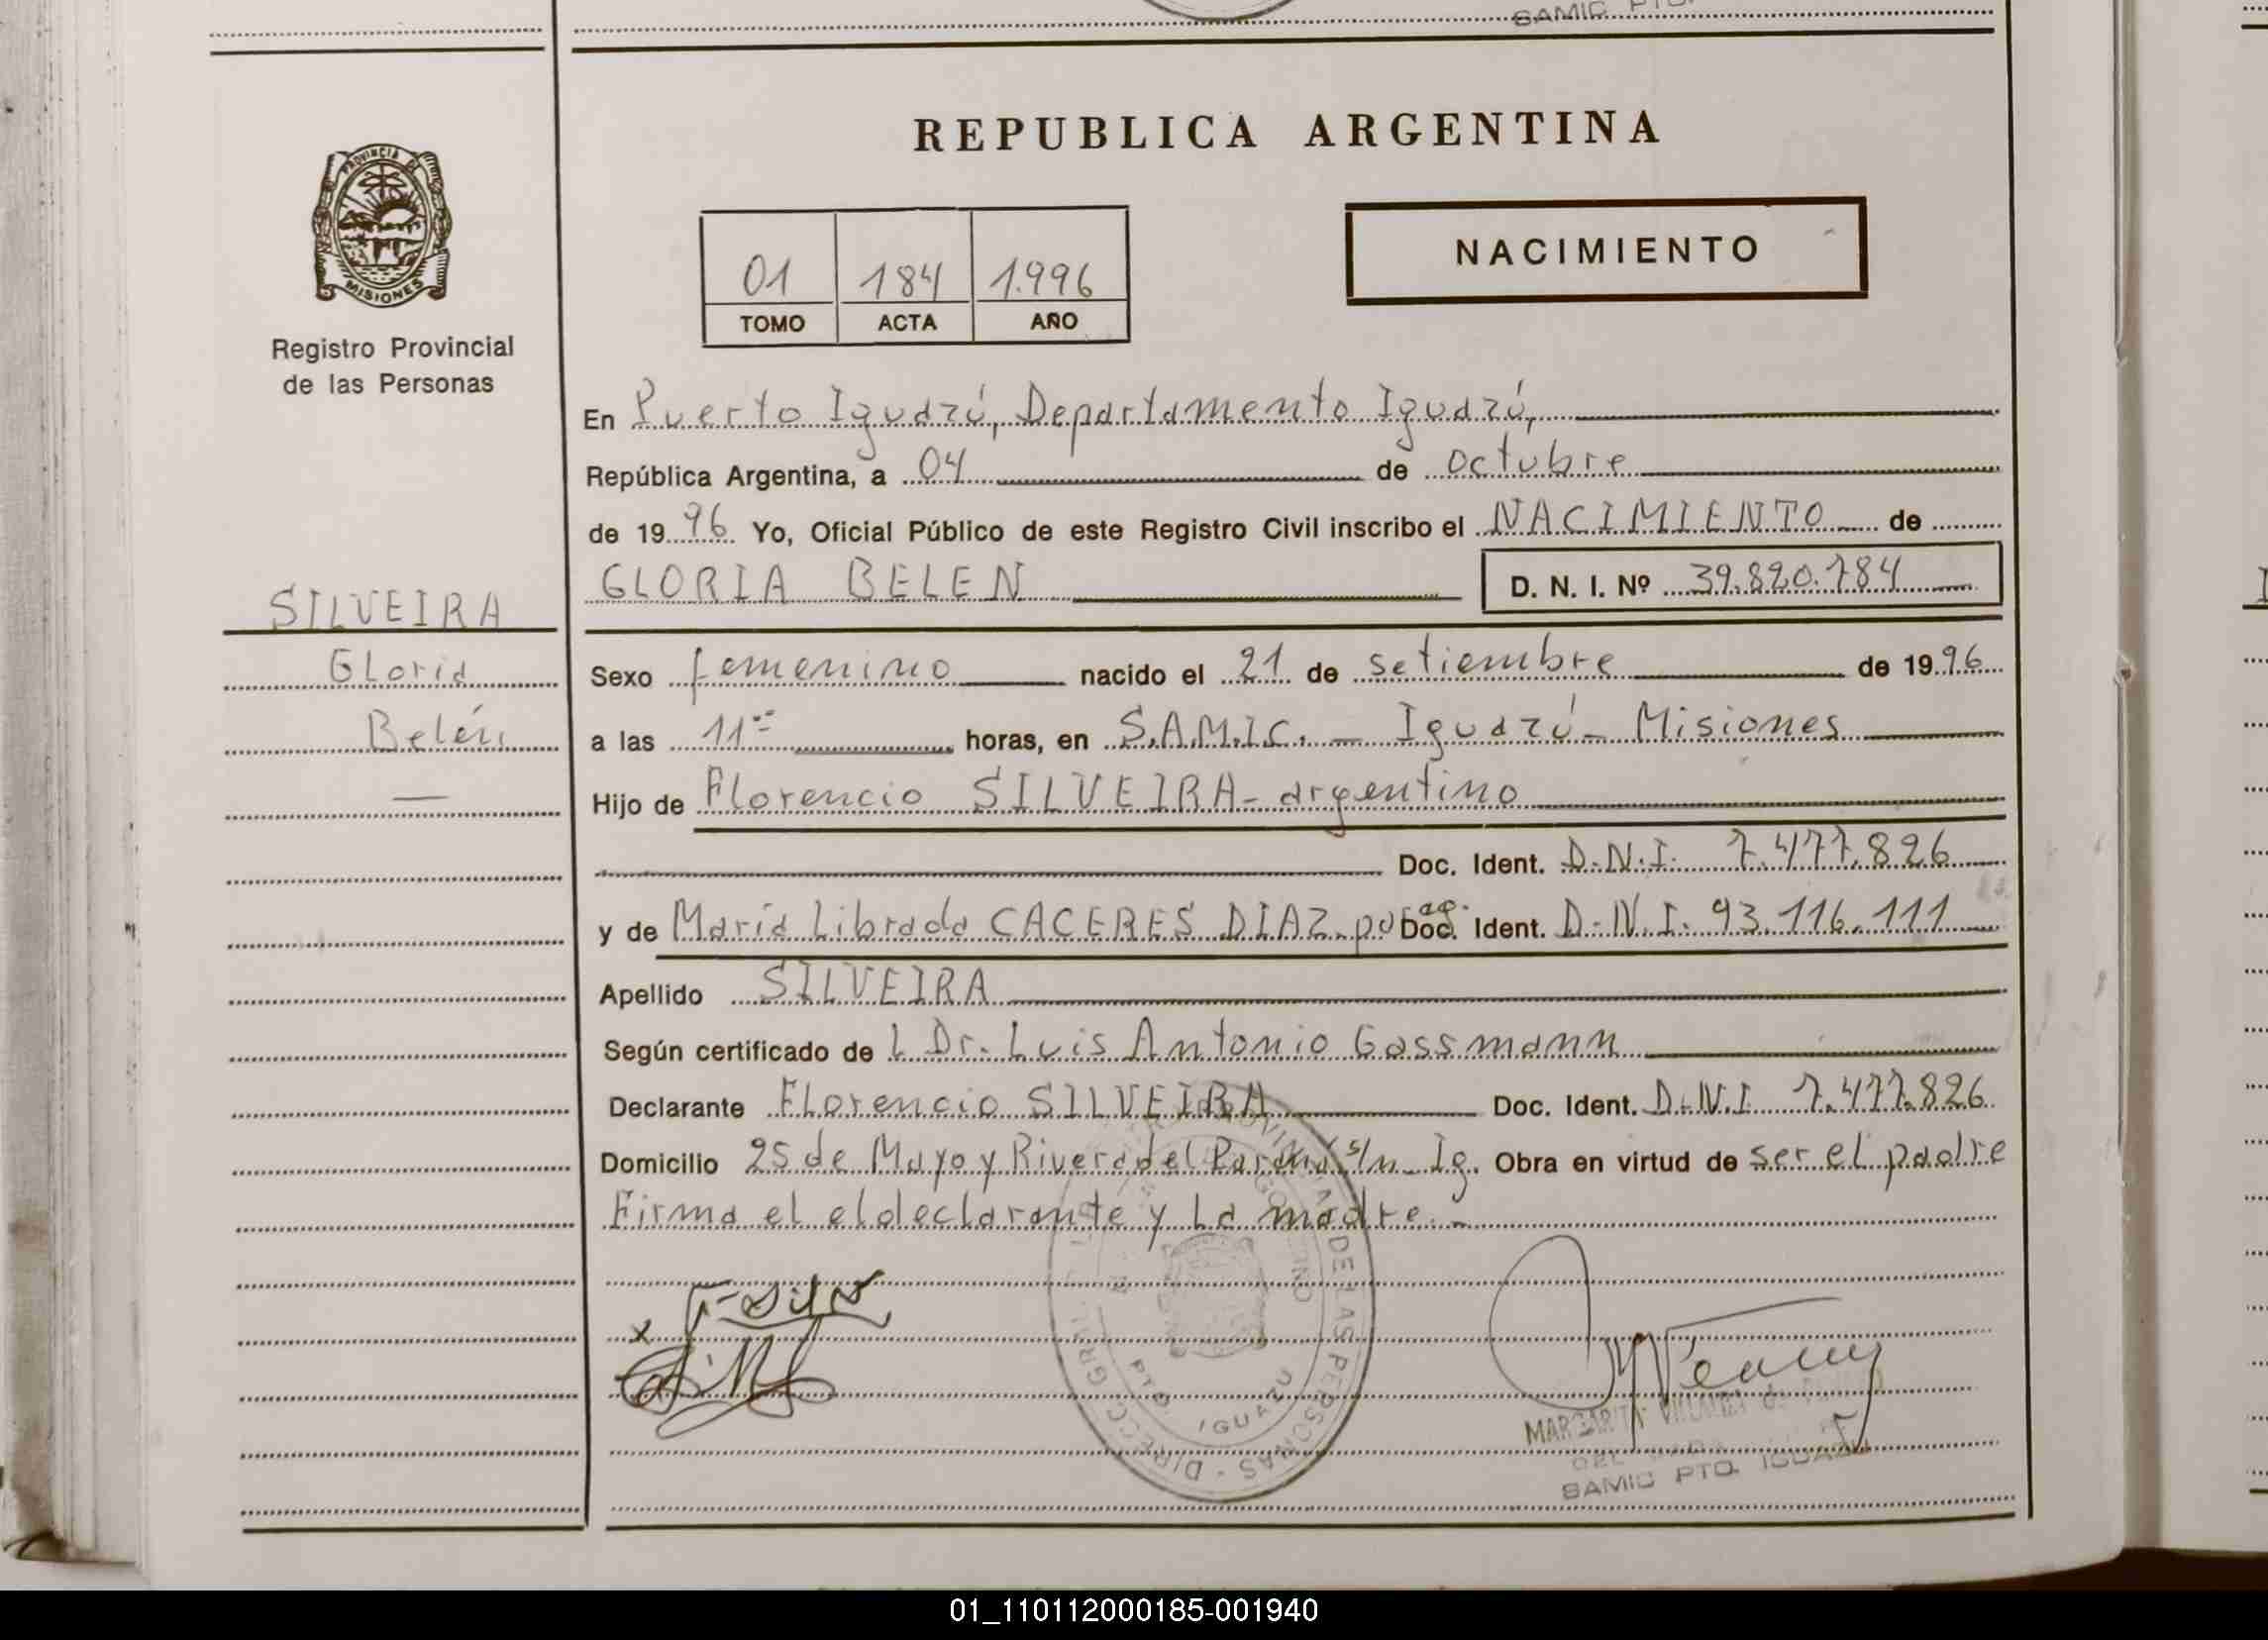 SAMIC PTO.
REPUBLICA ARGENTINA
PROVINCIA DE
MISIONES
Registro Provincial
de las Personas
01 184 1.996
TOMO ACTA AÑO
NACIMIENTO
En Puerto Iguazú, Departamento Iguazú,
República Argentina, a 04 de octubre
de 1996 Yo, Oficial Público de este Registro Civil inscribo el NACIMIENTO de
GLORIA BELEN D. N. I. Nº 39.820.784
SILVEIRA
Gloria
Belén
Sexo femenino nacido el 21 de setiembre de 1996
a las 11 horas, en S.A.M.I.C. - Iguazú - Misiones
Hijo de Florencio SILVEIRA - argentino
Doc. Ident. D.N.I. 7.477.826
y de María Librada CACERES DIAZ. Doc. Ident. D.N.I. 93.116.111
Apellido SILVEIRA
Según certificado de l Dr. Luis Antonio Gassmann
Declarante Florencio SILVEIRA Doc. Ident. D.N.I 7.477.826
Domicilio 25 de Mayo y Rivera del Paraná s/n - Ig. Obra en virtud de ser el padre
Firma el el declarante y La madre. -
PROVINCIAL DE LAS PERSONAS - DIRECC. GRAL.
GOBIERNO
PTO. IGUAZU
MARGARITA
SAMIC PTO. IGUAZU
01_110112000185-001940